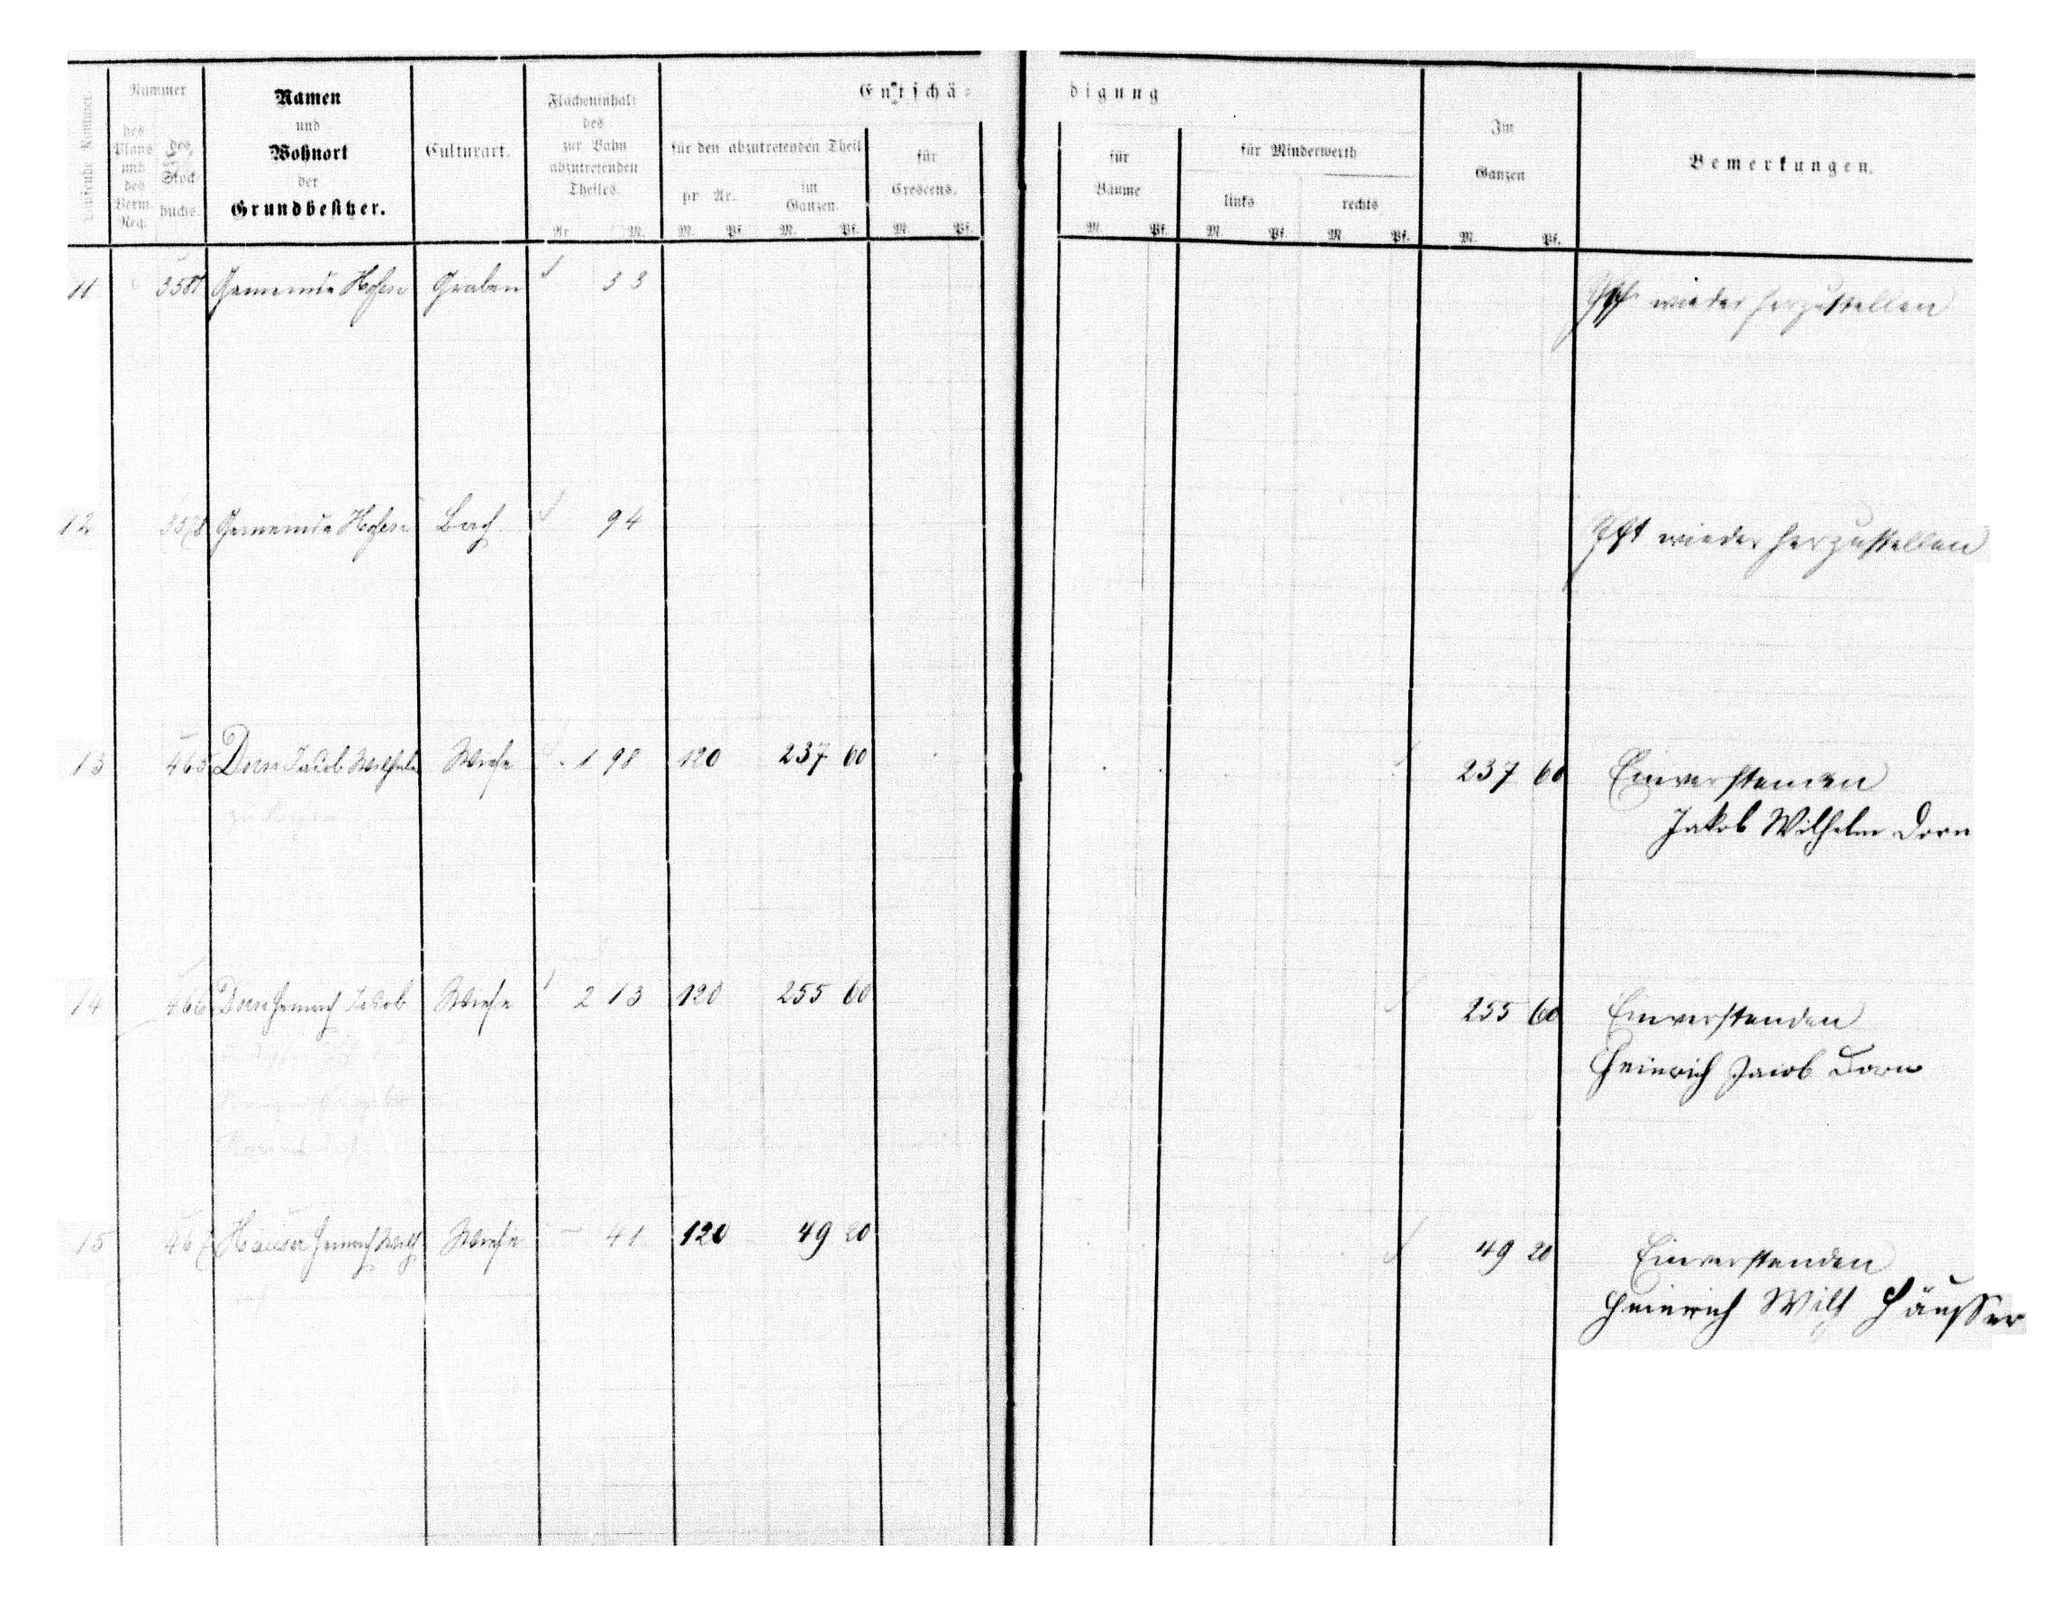 Entschä-
digung
Laufende Nummer.
Nummer
des Plans und des Verm. Reg.
des Stock buchs.
Namen
und
Wohnort
der
Grundbesitzer.
Culturart.
Flächeninhalt
des
zur Bahn
abzutretenden
Theiles.
Ar. ☐M.
für den abzutretenden Theil
pr. Ar.
im
Ganzen.
M. Pf. M. Pf.
für
Crescens.
M. Pf.
für
Bäume
M. Pf.
für Minderwerth
links
rechts
M. Pf. M. Pf.
Im
Ganzen
M. Pf.
Bemerkungen.
11 Gemeinde Hofen Graben 33 wieder herzustellen
12 3578 Gemeinde Hofen Bach 94 wieder herzustellen
13 465 Dorn Jakob Wilhelm Wiese 1 98 120 237 60 237 60 Einverstanden
Jakob Wilhelm Dorn
14 466 Dorn Heinrich Jakob Wiese 2 13 120 255 60 255 60 Einverstanden
Heinrich Jacob Dorn
15 467 Häuser Heinrich Wilh. Wiese – 41 120 49 20 49 20 Einverstanden
Heinrich Wilh Häusser